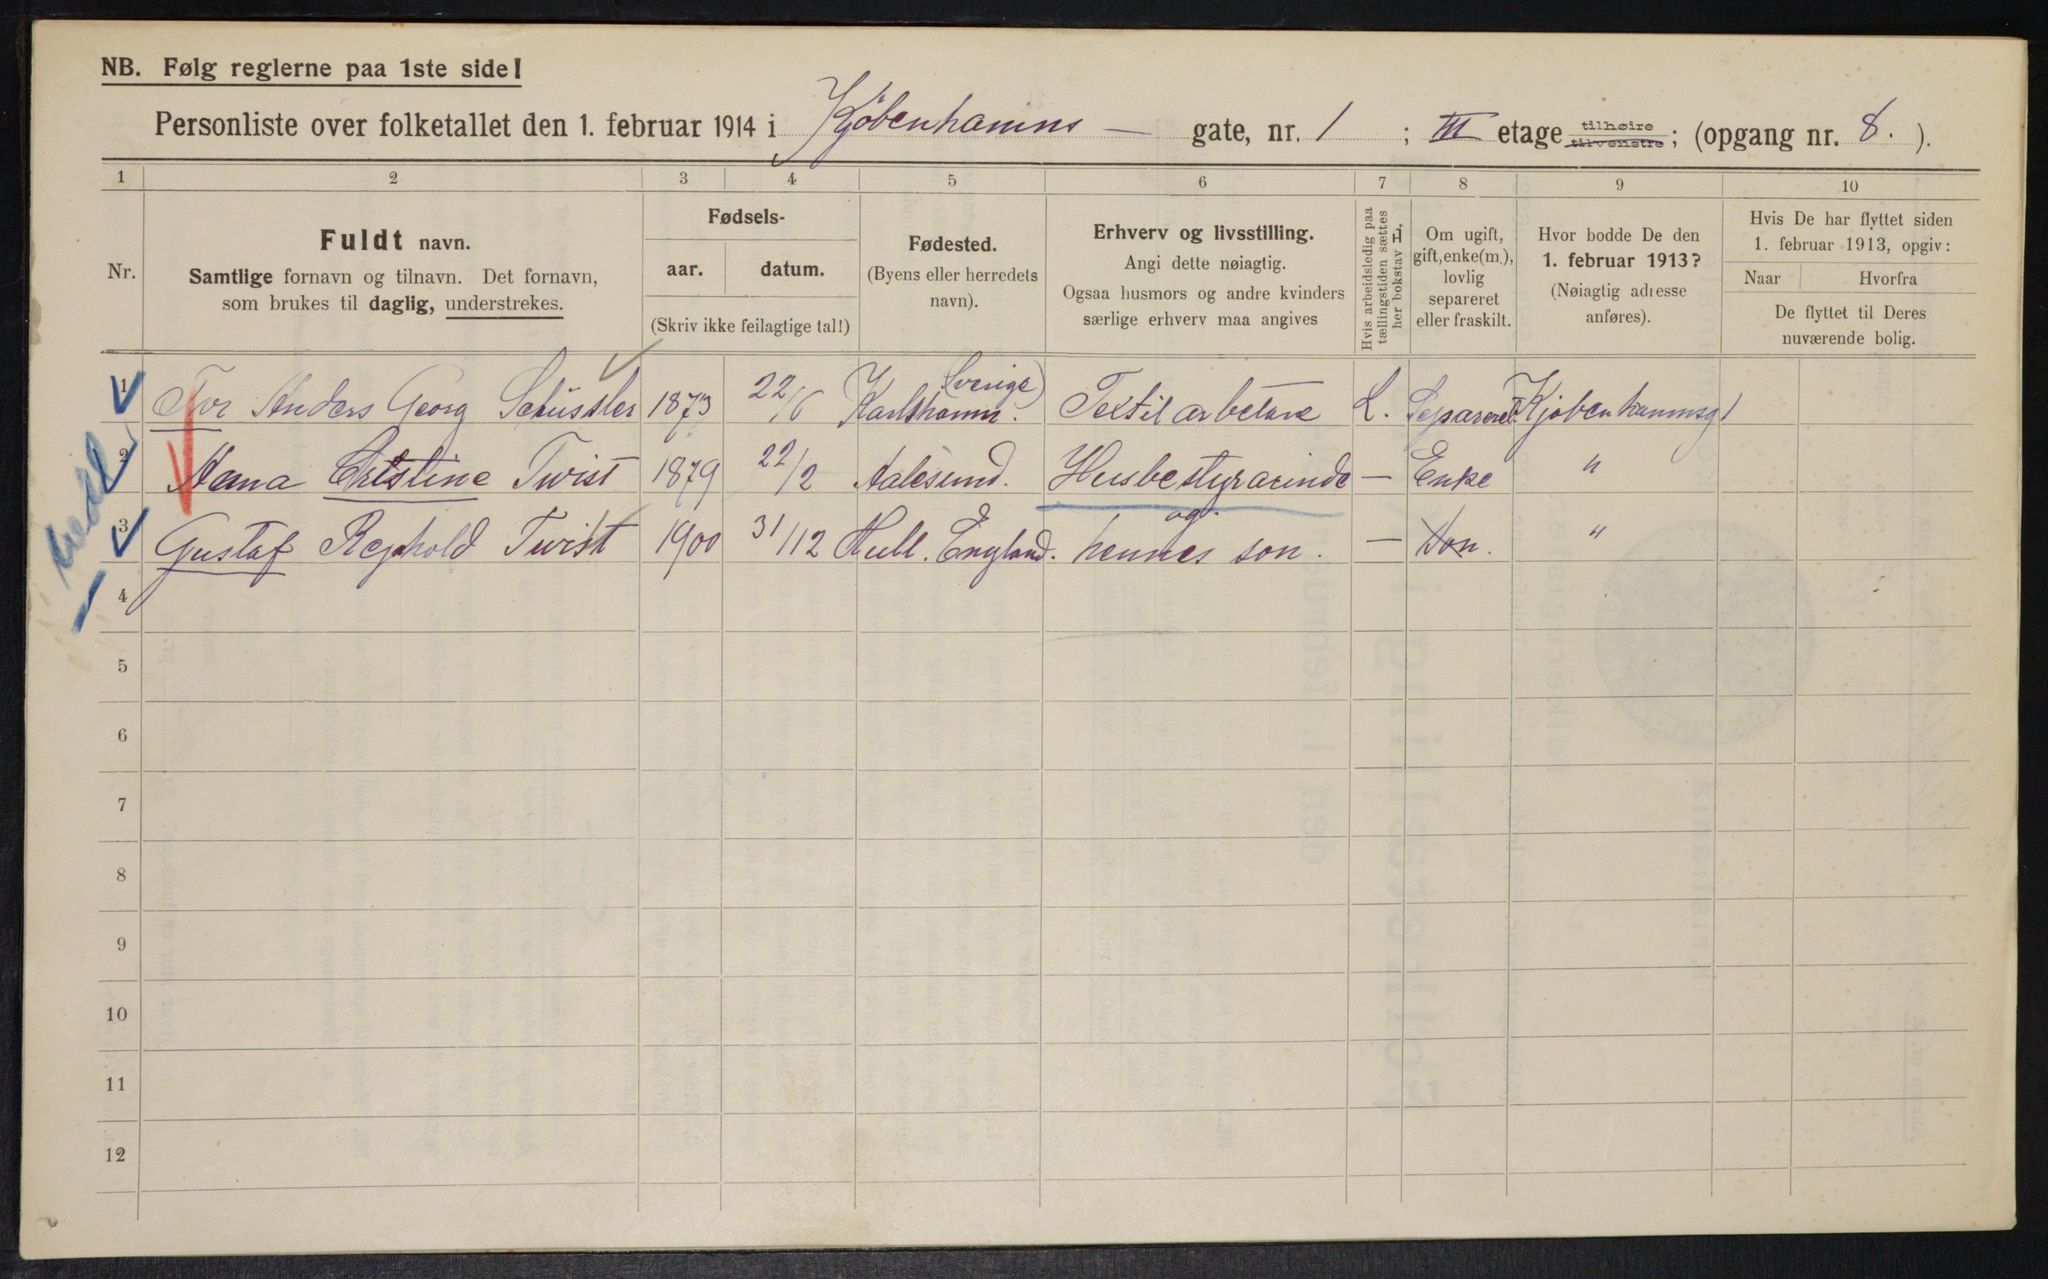 NB. Følg reglerne paa 1ste side!
Personliste over folketallet den 1. februar 1914 i Kjøbenhamns — gate, nr. 1 ; III etage tilhøire tilvenstre ; (opgang nr. 8. ).
1 2 3 4 5 6 7 8 9 10
Nr.
Fuldt navn.
Samtlige fornavn og tilnavn. Det fornavn,
som brukes til daglig, understrekes.
Fødsels-
aar. datum.
(Skriv ikke feilagtige tal!)
Fødested.
(Byens eller herredets
navn).
Erhverv og livsstilling.
Angi dette nøiagtig.
Ogsaa husmors og andre kvinders
særlige erhverv maa angives
Hvis arbeidsledig paa
tællingstiden sættes
her bokstav L.
Om ugift,
gift, enke(m.),
lovlig
separeret
eller fraskilt.
Hvor bodde De den
1. februar 1913?
(Nøiagtig adresse
anføres).
Hvis De har flyttet siden
1. februar 1913, opgiv:
Naar Hvorfra
De flyttet til Deres
nuværende bolig.
1 Tor Anders Georg Schüssler 1873 22/6 Karlshamn. Sverige) Textil arbetare L. Separeret Kjøbenhamnsg 1
2 Anna Cristine Twist 1879 22/2 Aalesund. Husbestyrarinde — Enke "
og
3 Gustaf Twist 1900 31/12 Hull. England. hennes son. — Son. "
4
5
6
7
8
9
10
11
12